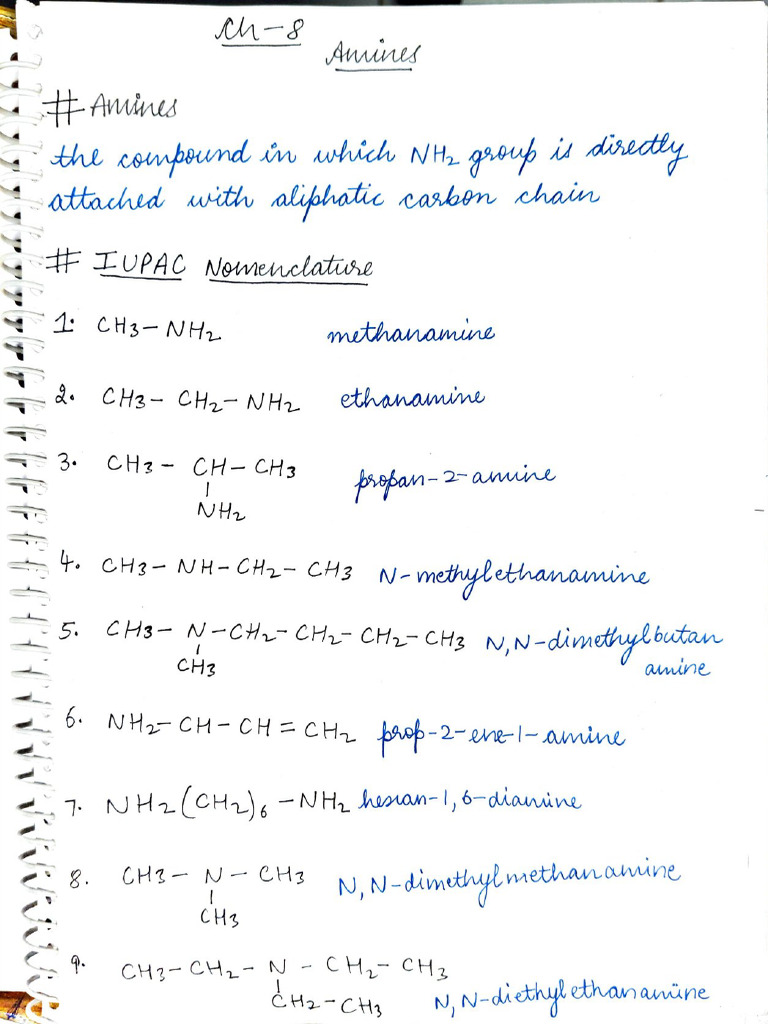 Ch-8
Amines
# Amines
the compound in which NH2 group is directly
attached with aliphatic carbon chain
# IUPAC Nomenclature
1. CH3-NH2 methanamine
2. CH3-CH2-NH2 ethanamine
3. CH3-CH-CH3 propan-2-amine
|
NH2
4. CH3-NH-CH2-CH3 N-methylethanamine
5. CH3-N-CH2-CH2-CH2-CH3 N,N-dimethylbutan
|
CH3 amine
6. NH2-CH-CH=CH2 prop-2-ene-1-amine
7. NH2(CH2)6-NH2 hexan-1,6-diamine
8. CH3-N-CH3 N,N-dimethylmethanamine
|
CH3
9. CH3-CH2-N-CH2-CH3
|
CH2-CH3 N,N-diethylethanamine